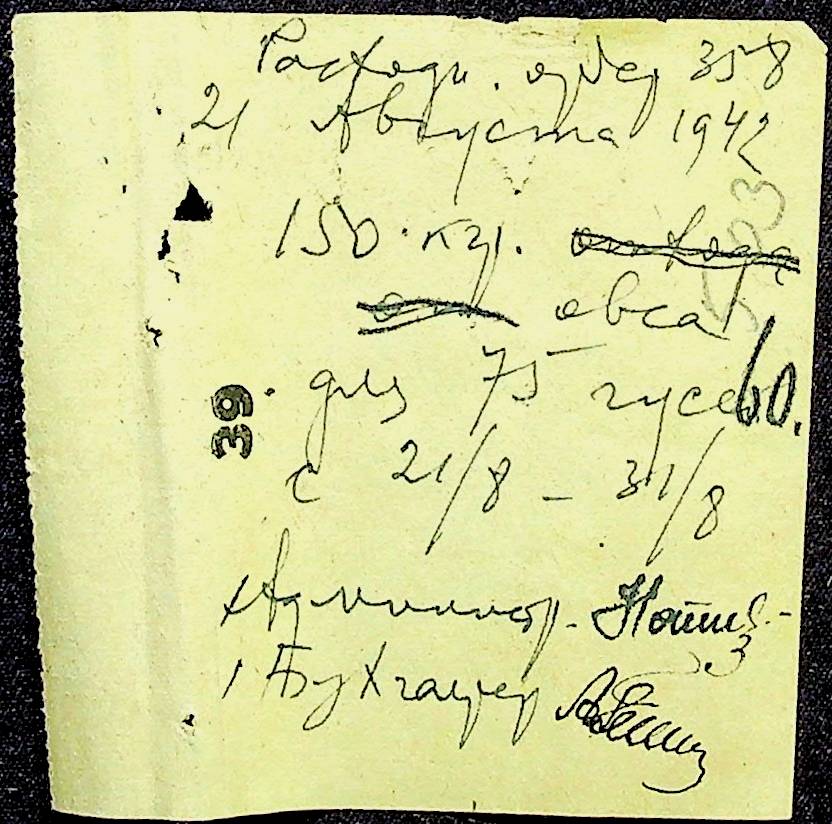 Расходн. ордер 358
21 Августа 1942
593
150 кгр. отхода
от овса
для 75 гусей
60.
39
с 21/8 - 31/8
Администр.
Бухгалтер